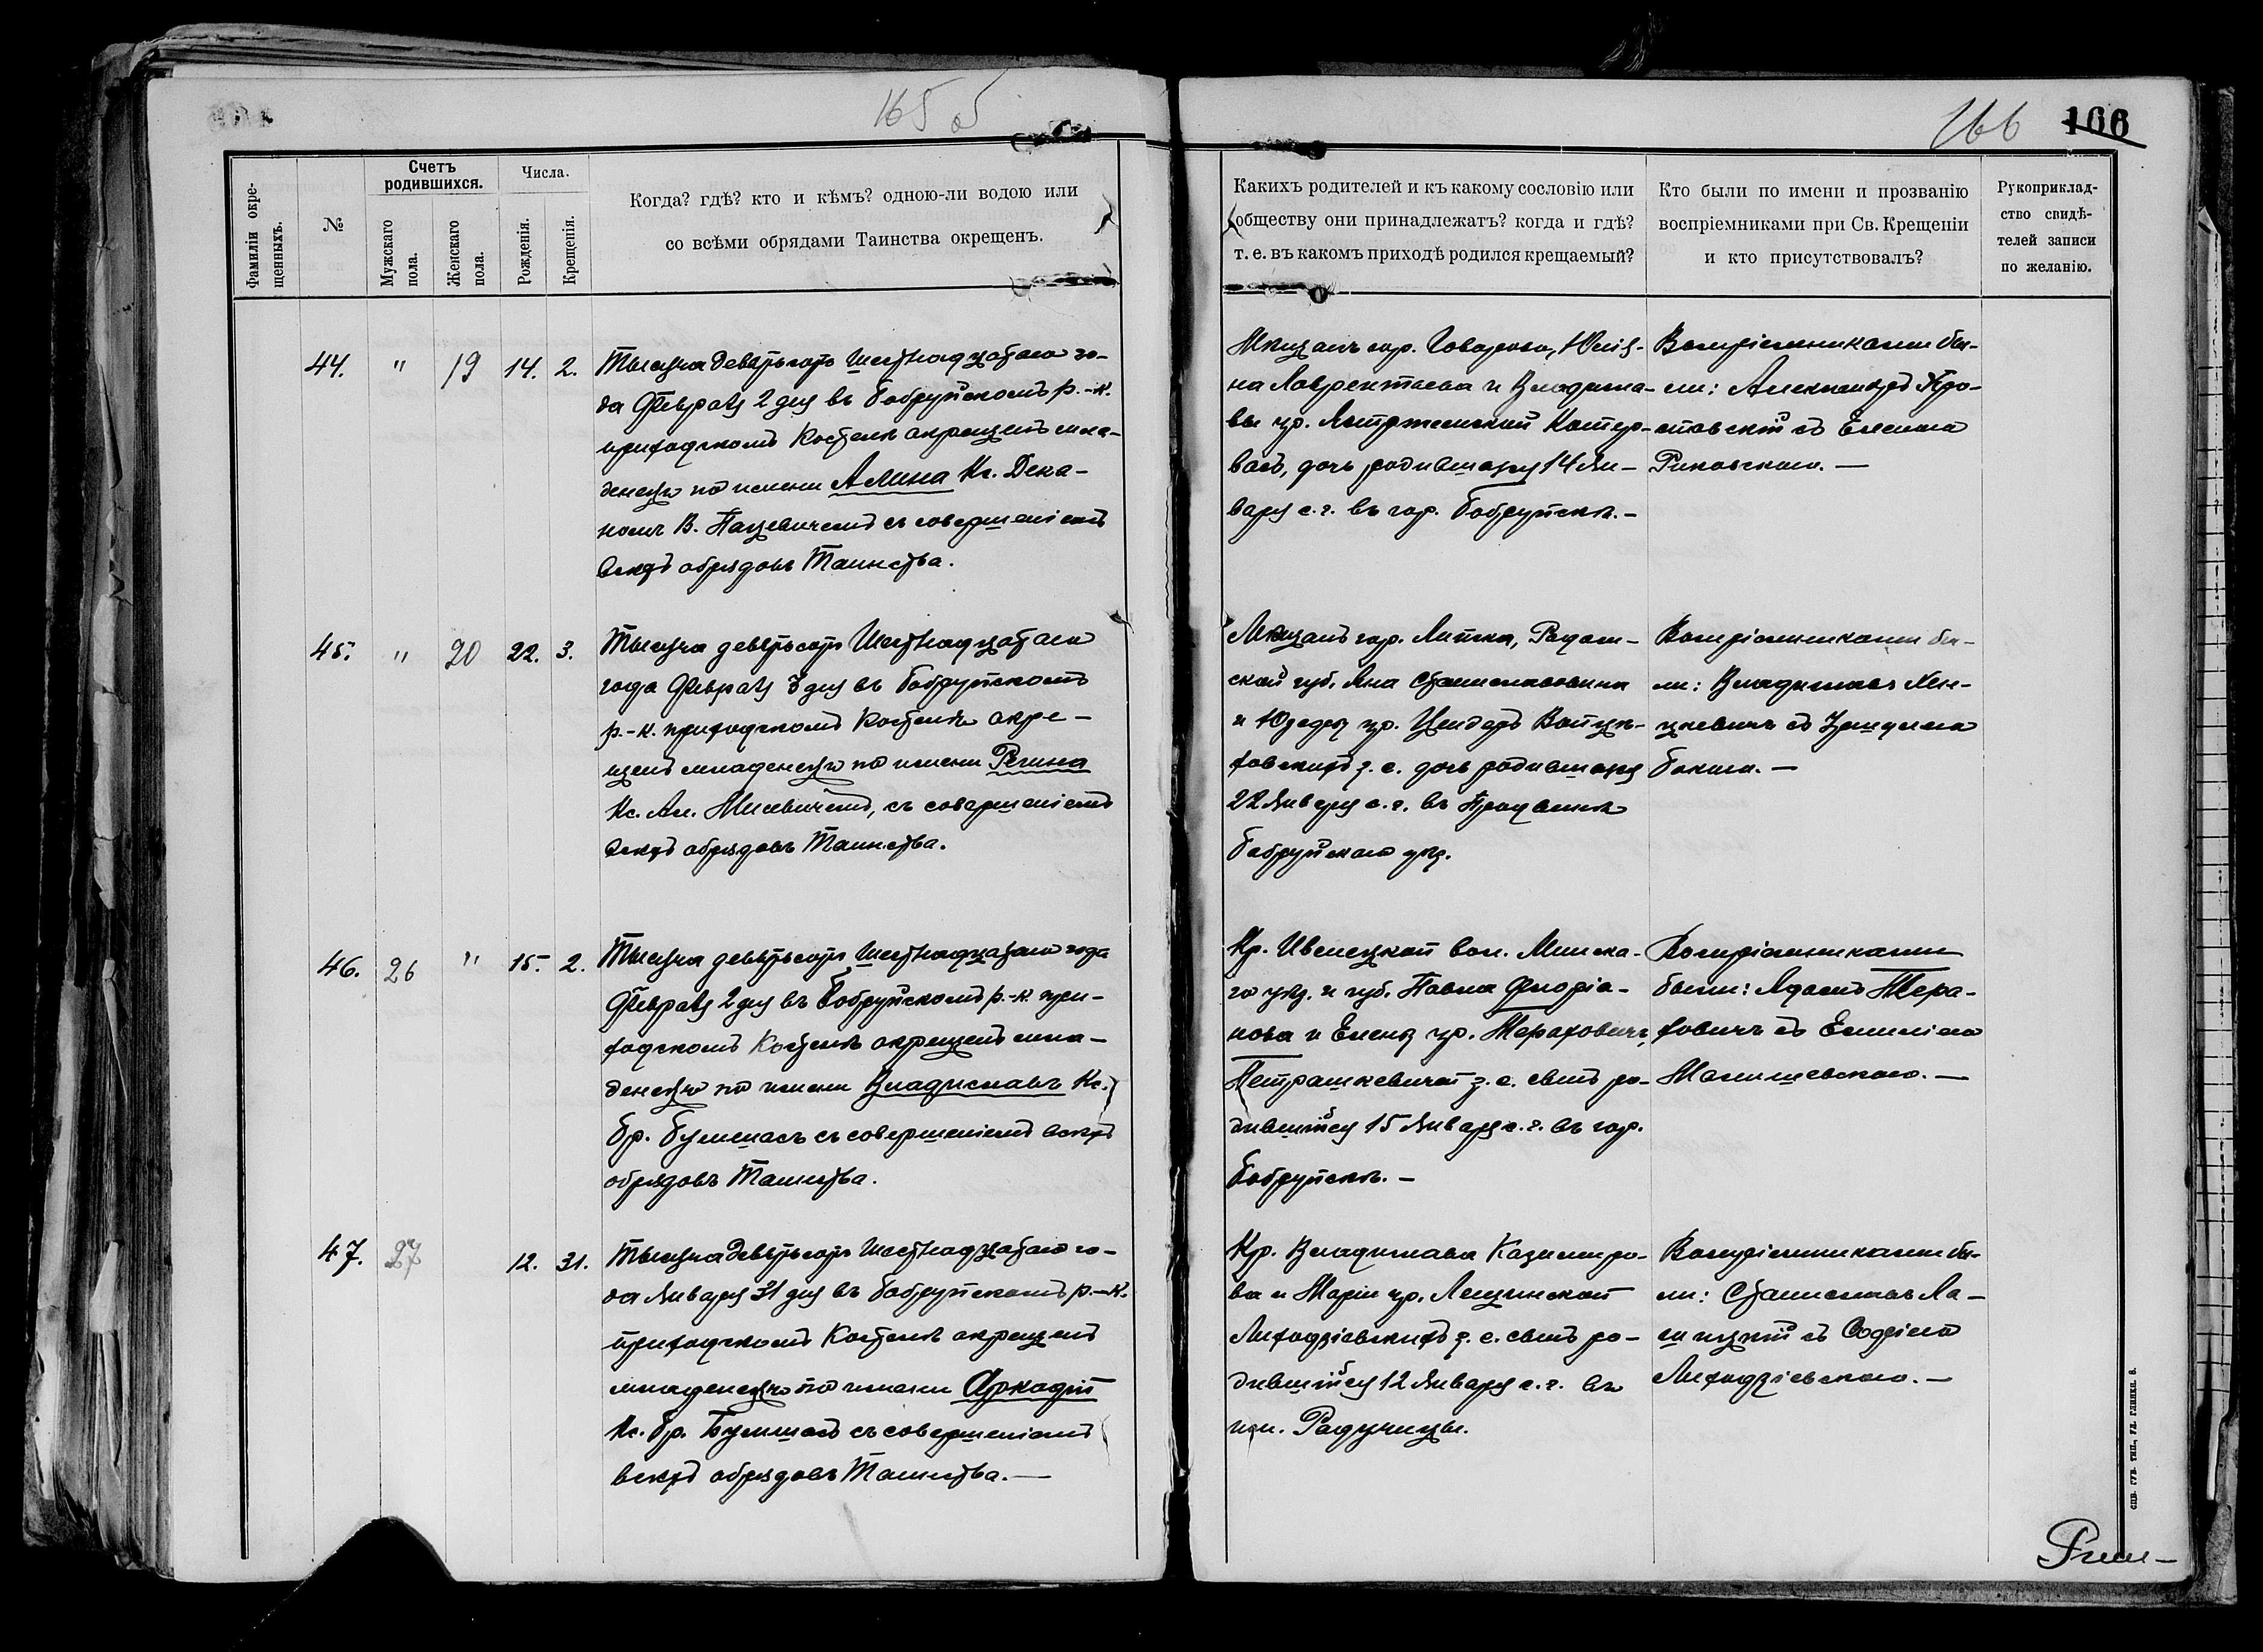 165 об
166
166
Фамиліи окре-
щенныхъ.
№
Счетъ
родившихся.
Мужскаго
пола.
Женскаго
пола.
Числа.
Рожденія.
Крещенія.
Когда? гдѣ? кто и кѣмъ? одною-ли водою или
со всѣми обрядами Таинства окрещенъ.
Какихъ родителей и къ какому сословію или
обществу они принадлежатъ? когда и гдѣ?
т. е. въ какомъ приходѣ родился крещаемый?
Кто были по имени и прозванію
воспріемниками при Св. Крещеніи
и кто присутствовалъ?
Рукоприклад-
ство свидѣ-
телей записи
по желанію.
44. " 19 14. 2.
Тысяча девятьсотъ шестнадцатаго го-
да Февраля 2 дня въ Бобруйскомъ р.-к.
приходскомъ Костелѣ окрещенъ мла-
денецъ по имени Алина Кс. Дека-
номъ В. Пацевичемъ съ совершеніемъ
всѣхъ обрядовъ Таинства.
Мѣщанъ гор.
на Лаврентьева и Владисла-
вы ур.
дочь родившаяся 14 Ян-
варя с. г. въ гор. Бобруйскѣ.-
Воспріемниками бы-
ли: Александръ
съ Еленою
45. " 20 22. 3.
Тысяча девятьсотъ Шестнадцатаго
года Февраля 3 дня въ Бобруйскомъ
р.-к. приходскомъ Костелѣ окре-
щенъ младенецъ по имени Регина
Кс. Ал. съ совершеніемъ
всѣхъ обрядовъ Таинства.
Мѣщанъ гор. Липска, Радом-
ской губ. Яна Станиславовича
и Юзефы ур. Войцѣ-
ховскихъ з. с. дочь родившаяся
22 Января с. г. въ
Бобруйскаго уѣз.
Воспріемниками бы-
ли: Владиславъ
съ
46. 26 " 15. 2.
Тысяча девятьсотъ шестнадцатаго года
Февраля 2 дня въ Бобруйскомъ р.-к. при-
ходскомъ Костелѣ окрещенъ мла-
денецъ по имени Владиславъ Кс.
Бр. съ совершеніемъ всѣхъ
обрядовъ Таинства.
Кр. Ивенецкой вол. Минска-
го уѣз. и губ. Павла Флоріа-
нова и Елены ур.
Петрашкевичей з. с. сынъ ро-
дившійся 15 Января с. г. въ гор.
Бобруйскѣ. -
Воспріемниками
были: Адамъ
съ Емиліею
47. 27 12. 31.
Тысяча девятьсотъ шестнадцатаго го-
да Января 31 дня въ Бобруйскомъ р.-к.
приходскомъ Костелѣ окрещенъ
младенецъ по имени Аркадій
Кс. Бр. съ совершеніемъ
всѣхъ обрядовъ Таинства. —
Кр. Владислава Казиміро-
ва и Маріи ур. Лещинской
Лиходзіевскихъ з. с. сынъ ро-
дившійся 12 Января с. г. въ
им. Радуницы.
Воспріемниками бы-
ли: Станиславъ
съ Софіею
Лиходзіевскою. —